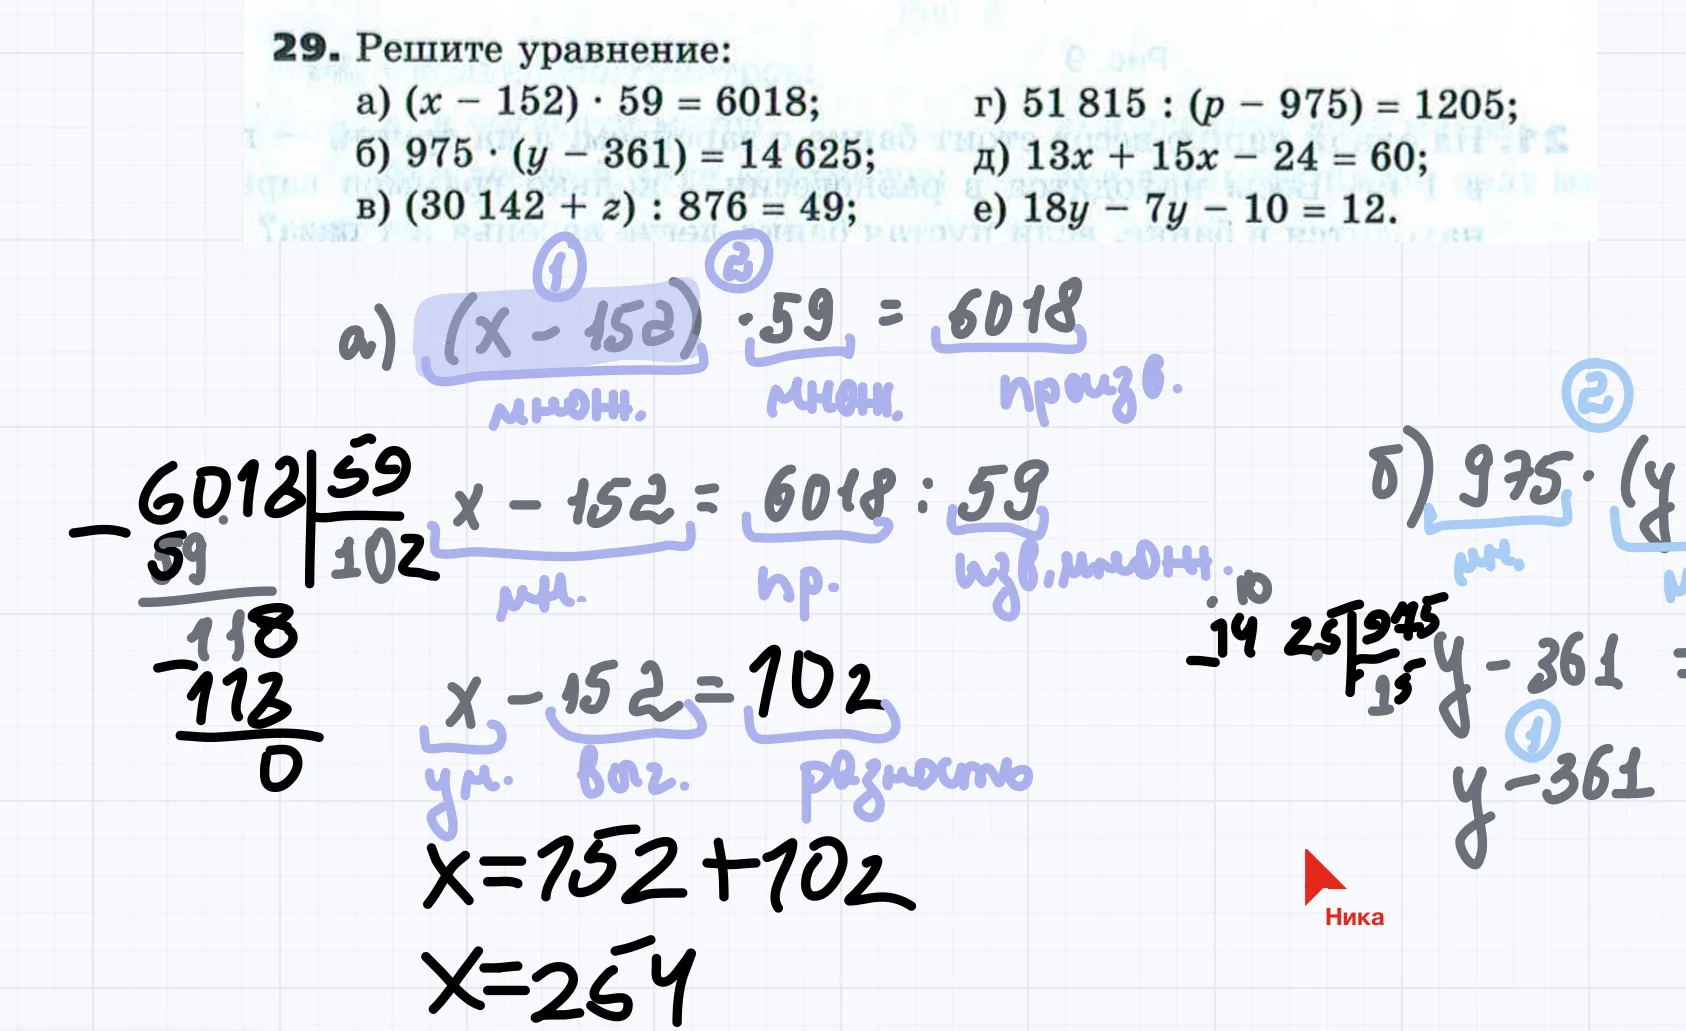 29. Решите уравнение:
а) (x − 152) · 59 = 6018;
б) 975 · (y − 361) = 14 625;
в) (30 142 + z) : 876 = 49;
г) 51 815 : (p − 975) = 1205;
д) 13x + 15x − 24 = 60;
е) 18y − 7y − 10 = 12.
1 2
а) (x − 152) · 59 = 6018
множ. множ. произв.
6018 59
59 102
118
118
0
x − 152 = 6018 : 59
мн. пр. изв. множ.
x − 152 = 102
ум. выч. разность
x = 152 + 102
x = 254
2
б) 975 · (y
мн.
10
14 25 975
15
y − 361 =
1
y − 361
Ника